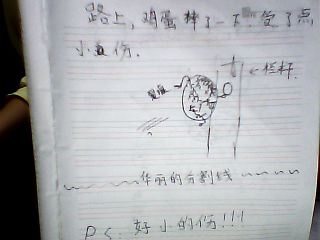 路上,鸡蛋摔了一下!受了点
小伤.
←栏杆.
~~~~华丽的分割线~~~~
PS.好小的伤!!!